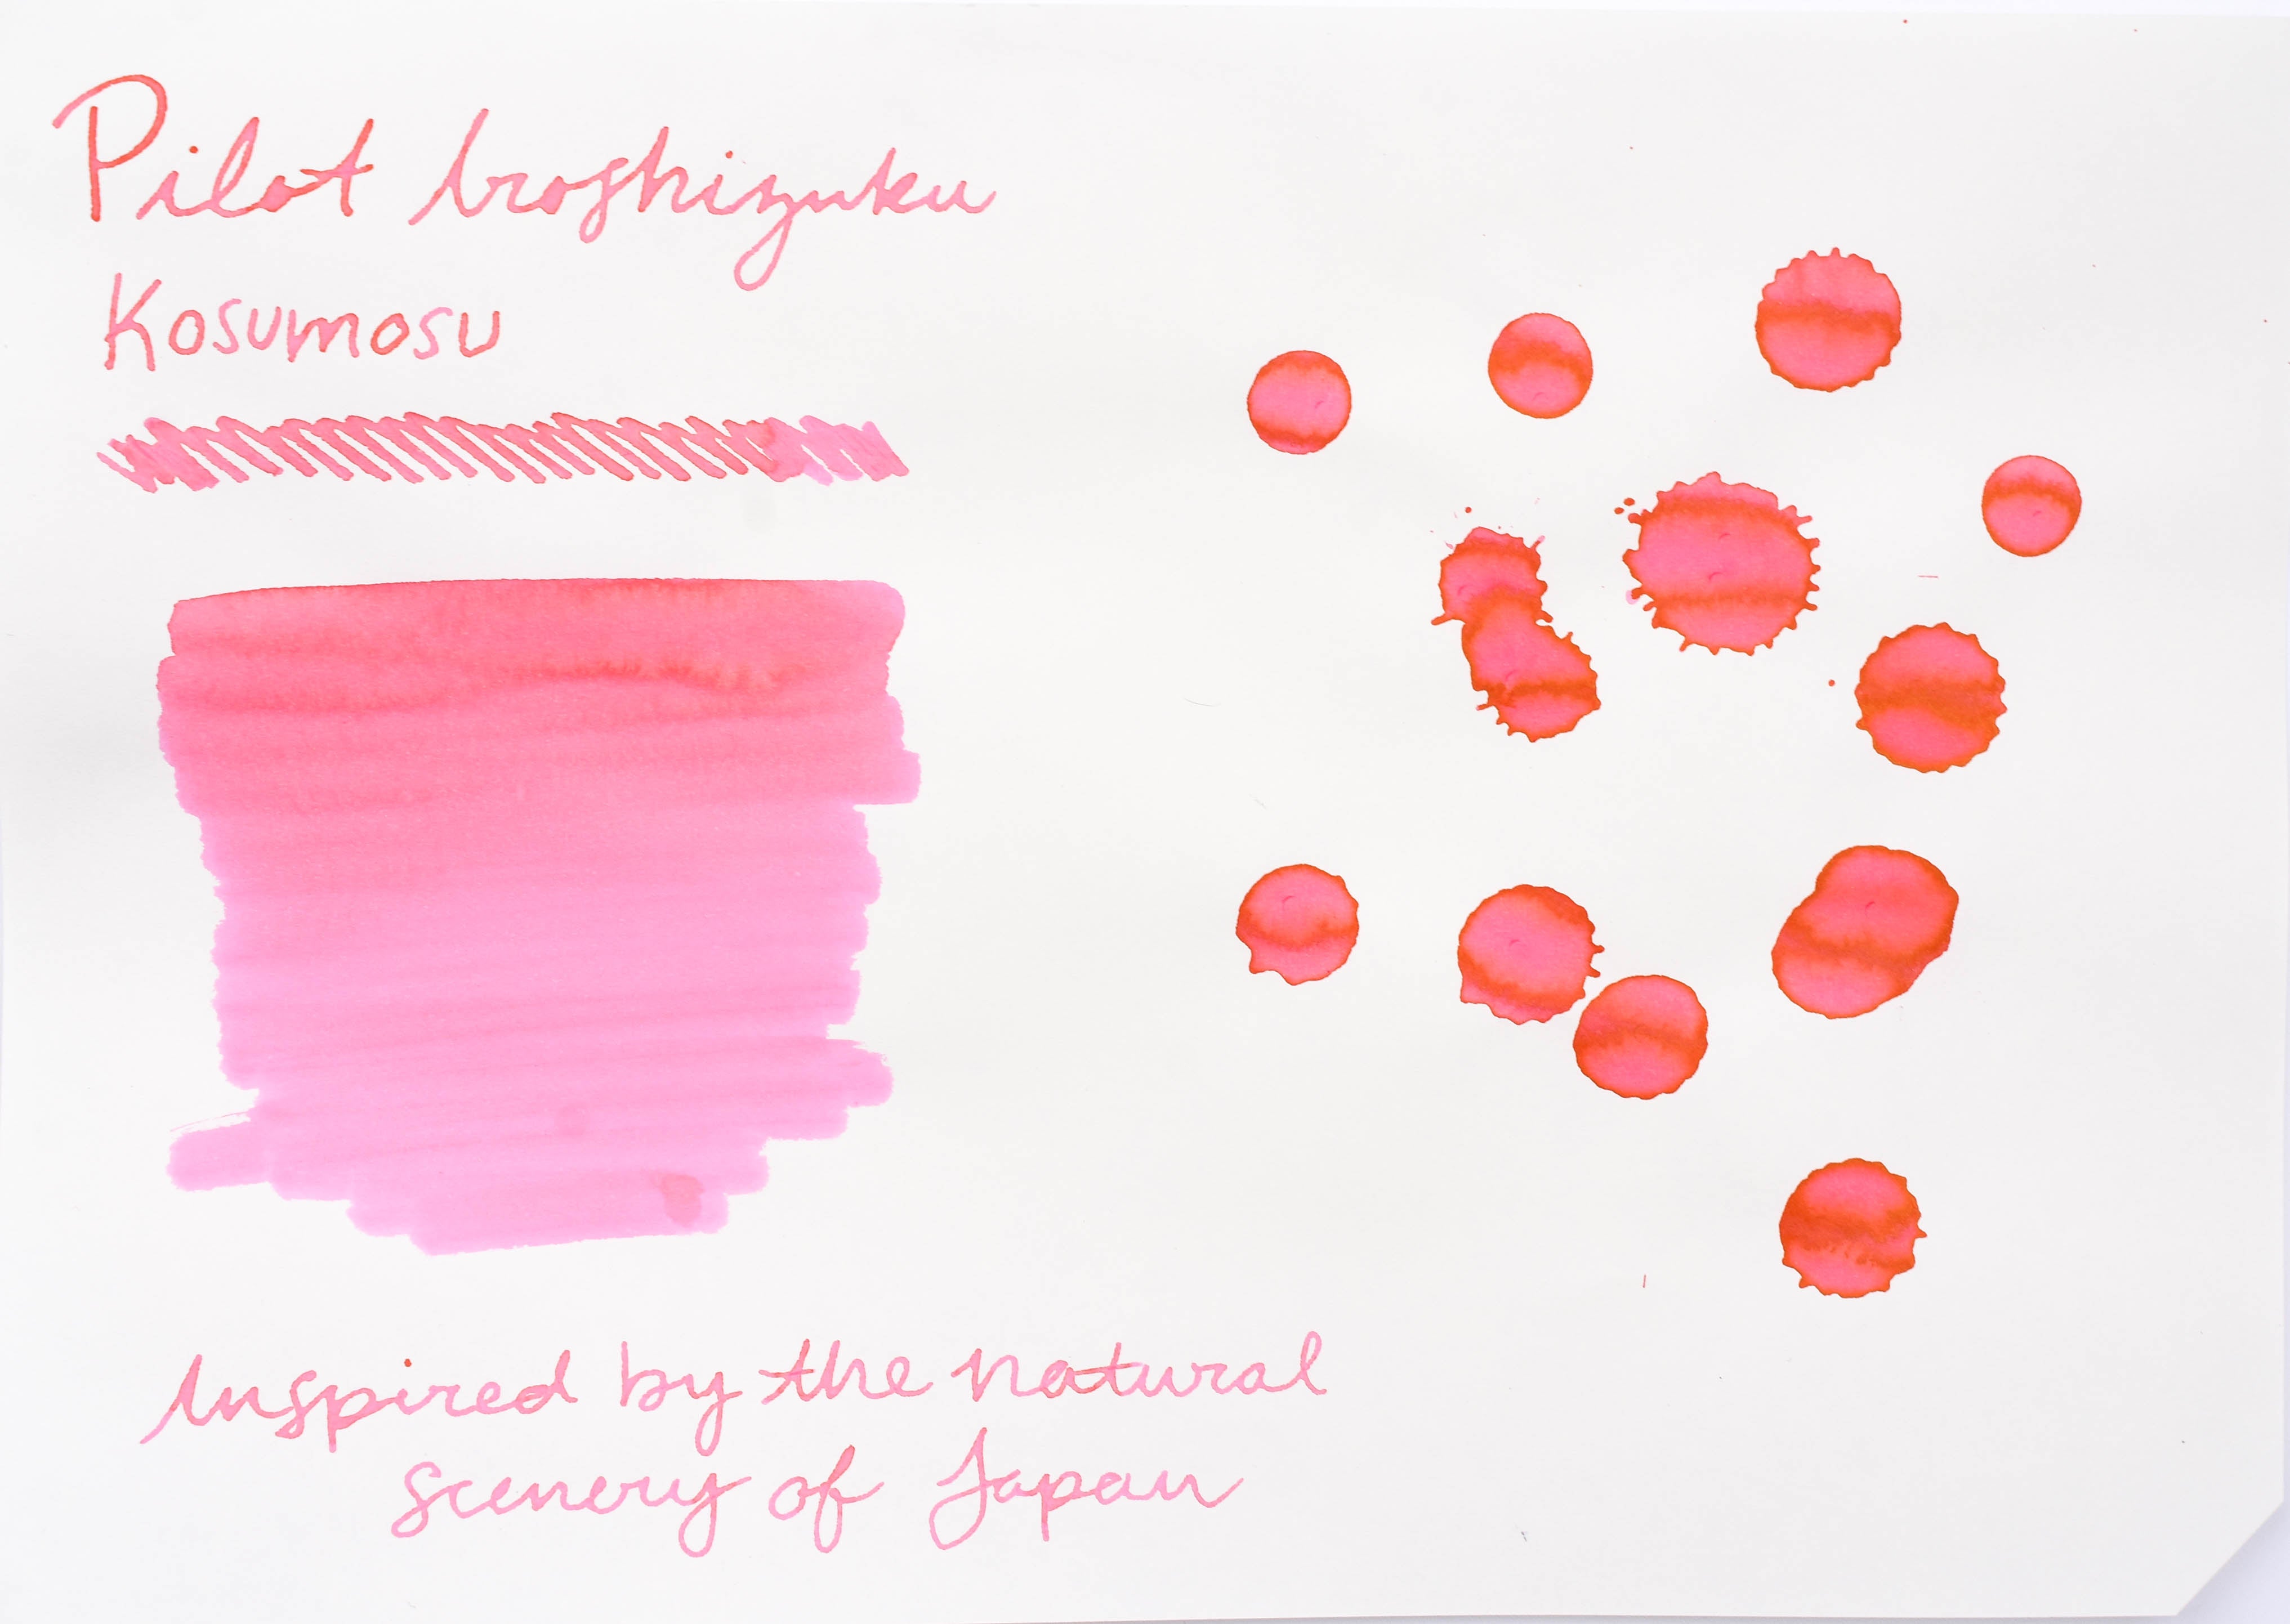 Pilot Iroshizuku
Kosumosu
Inspired by the natural
scenery of Japan